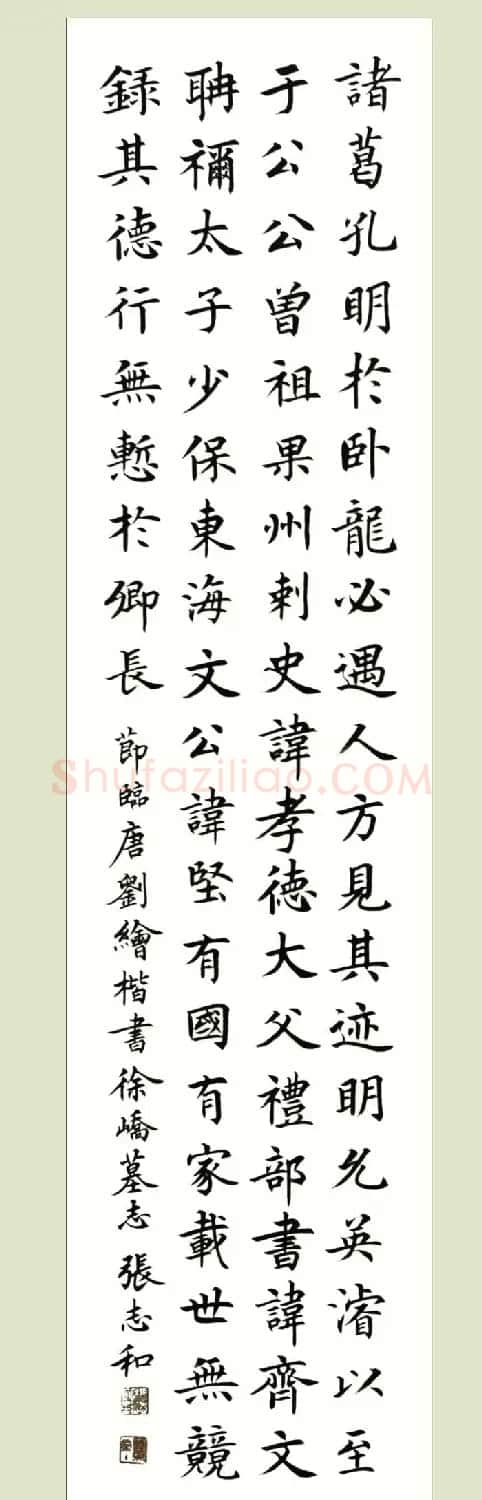 諸葛孔明於卧龍必遇人方見其迹明允英濬以至
于公公曾祖果州刺史諱孝德大父禮部書諱齊文
聃禰太子少保東海文公諱堅有國有家載世無競
録其德行無慙於卿長 節臨唐劉繪楷書徐嶠墓志 張志和
Shufaziliao.COM